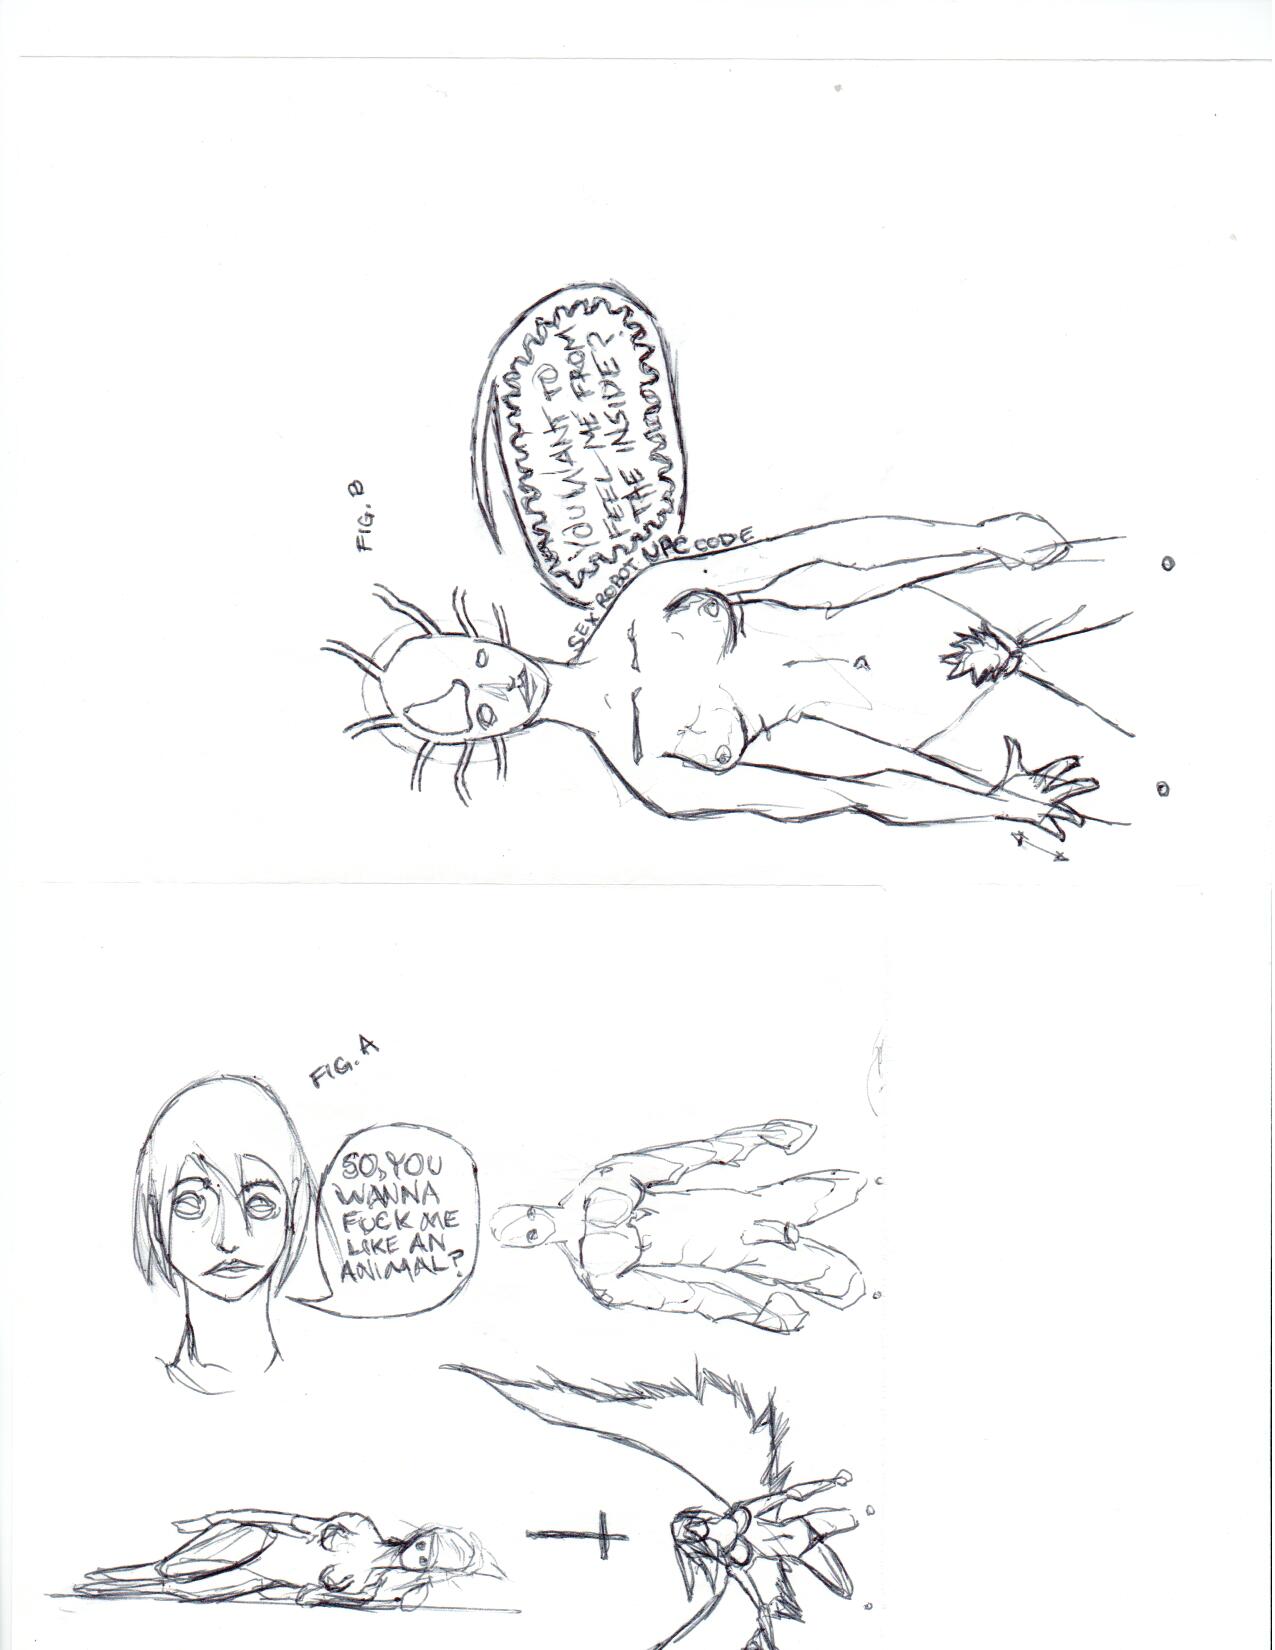 FIG. B
YOU WANT TO
FEEL ME FROM
THE INSIDE?
SEX ROBOT UPC CODE
FIG. A
SO, YOU
WANNA
FUCK ME
LIKE AN
ANIMAL?